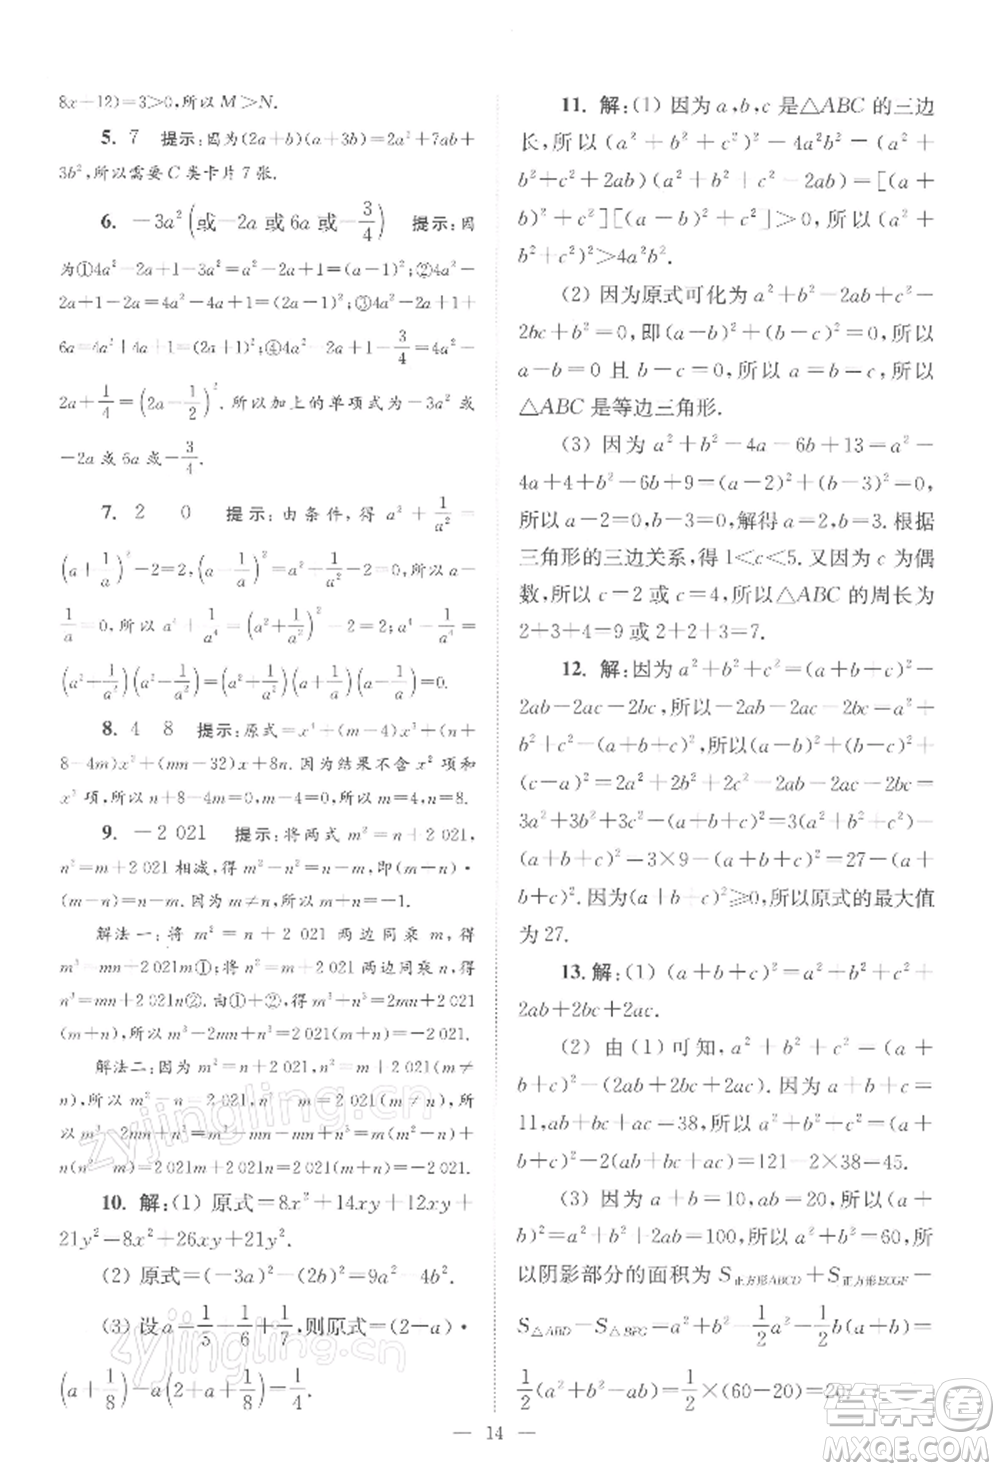 8x+12)=3>0,所以 M>N.
5. 7 提示:因为(2a+b)(a+3b)=2a²+7ab+
3b²,所以需要 C 类卡片 7 张.
6. −3a²(或−2a 或 6a 或−3/4) 提示:因
为①4a²−2a+1−3a²=a²−2a+1=(a−1)²;②4a²−
2a+1−2a=4a²−4a+1=(2a−1)²;③4a²−2a+1+
6a=4a²+4a+1=(2a+1)²;④4a²−2a+1−3/4=4a²−
2a+1/4=(2a−1/2)².所以加上的单项式为−3a²或
−2a 或 6a 或−3/4.
7. 2 0 提示:由条件,得 a²+1/a²=
(a+1/a)²−2=2,(a−1/a)²=a²+1/a²−2=0,所以 a−
1/a=0,所以 a⁴+1/a⁴=(a²+1/a²)²−2=2,a⁴−1/a⁴=
(a²+1/a²)(a²−1/a²)=(a²+1/a²)(a+1/a)(a−1/a)=0.
8. 4 8 提示:原式=x⁴+(m−4)x³+(n+
8−4m)x²+(mn−32)x+8n.因为结果不含 x²项和
x³项,所以 n+8−4m=0,m−4=0,所以 m=4,n=8.
9. −2 021 提示:将两式 m²=n+2 021,
n²=m+2 021 相减,得 m²−n²=n−m,即(m+n)·
(m−n)=n−m.因为 m≠n,所以 m+n=−1.
解法一:将 m²=n+2 021 两边同乘 m,得
m³=mn+2 021m①;将 n²=m+2 021两边同乘 n,得
n³=mn+2 021n②.由①+②,得 m³+n³=2mn+2 021
(m+n),所以 m³−2mn+n³=2 021(m+n)=−2 021.
解法二:因为 m²=n+2 021,n²=m+2 021(m≠
n),所以 m²−n=2 021,n²−m=2 021,m+n=−1,所
以 m³−2mn+n³=m³−mn−mn+n³=m(m²−n)+
n(n²−m)=2 021m+2 021n=2 021(m+n)=−2 021.
10. 解:(1) 原式=8x²+14xy+12xy+
21y²−8x²=26xy+21y².
(2) 原式=(−3a)²−(2b)²=9a²−4b².
(3) 设a=1/5+1/6+1/7,则原式=(2−a)·
(a+1/8)−a(2−a+1/8)=1/4.
11. 解:(1) 因为 a,b,c 是△ABC 的三边
长,所以(a²+b²+c²)²−4a²b²=(a²+
b²+c²+2ab)(a²+b²+c²−2ab)=[(a+
b)²+c²][(a−b)²+c²]>0,所以(a²+
b²+c²)²>4a²b².
(2) 因为原式可化为 a²+b²−2ab+c²−
2bc+b²=0,即(a−b)²+(b−c)²=0,所以
a−b=0 且 b−c=0,所以 a=b=c,所以
△ABC是等边三角形.
(3) 因为 a²+b²−4a−6b+13=a²−
4a+4+b²−6b+9=(a−2)²+(b−3)²=0,
所以a−2=0,b−3=0,解得a=2,b=3.根据
三角形的三边关系,得 1<c<5.又因为 c 为偶
数,所以 c=2 或 c=4,所以△ABC 的周长为
2+3+4=9 或 2+2+3=7.
12. 解:因为 a²+b²+c²=(a+b+c)²−
2ab−2ac−2bc,所以−2ab−2ac−2bc=
a²+b²+c²−(a+b+c)²,所以(a−b)²+
(b−c)²+(c−a)²=2a²+2b²+2c²−2ab−2bc−2ac=
3a²+3b²+3c²−(a+b+c)²=3(a²+b²+c²)
−(a+b+c)²=3×9−(a+b+c)²=27−(a+
b+c)².因为(a+b+c)²⩾0,所以原式的最大值
为 27.
13. 解:(1) (a+b+c)²=a²+b²+c²+
2ab+2bc+2ac.
(2) 由 (1) 可知,a²+b²+c²=(a+
b+c)²−2(ab+bc+ac).因为 a+b+c=
11,ab+bc+ac=38,所以a²+b²+c²=
(a+b+c)²−2(ab+bc+ac)=121−2×38=45.
(3) 因为 a+b=10,ab=20,所以(a+
b)²=a²+b²+2ab=100,所以a²+b²=60,所
以阴影部分的面积为 S正方形ABCD+S正方形ECGF−
S△ABD−S△BFG=a²+b²−1/2a²−1/2b(a+b)=
1/2(a²+b²−ab)=1/2×(60−20)=20.
— 14 —
zyjingling.cn
zyjingling.cn
答案圈
MXQE.COM